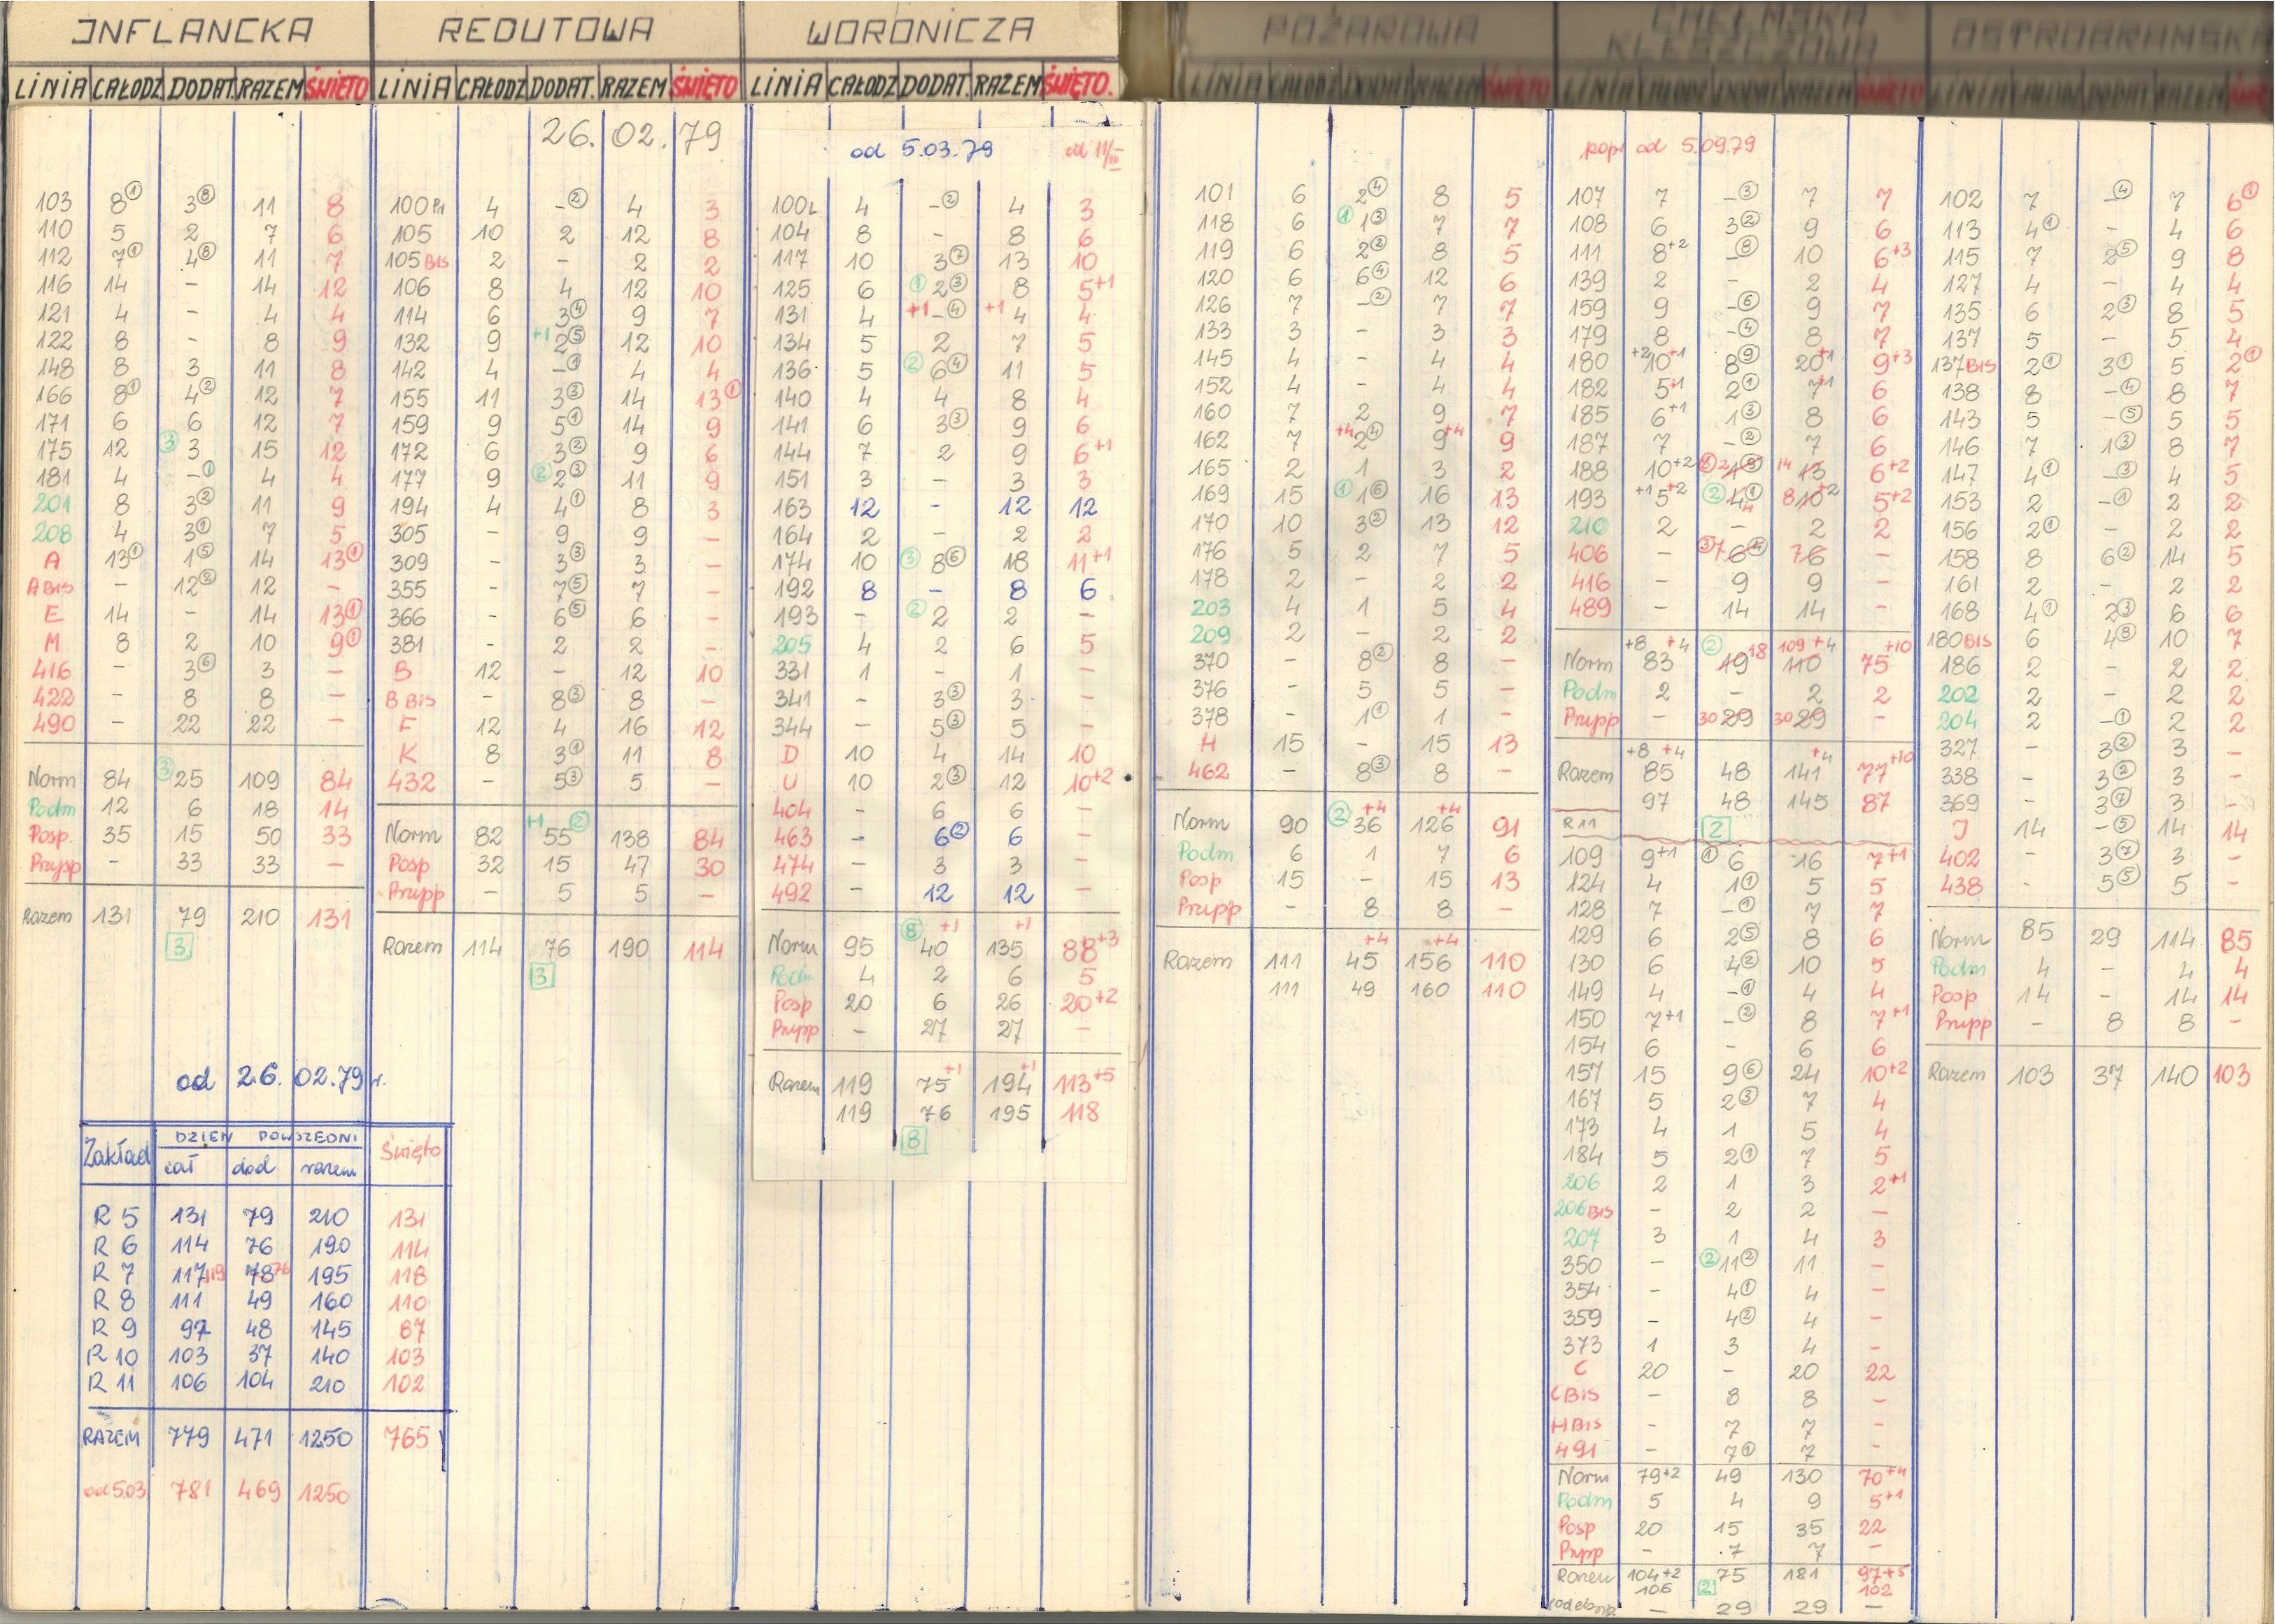 INFLANCKA
LINIA CAŁODZ DODAT RAZEM ŚWIĘTO
103 8① 3⑧ 11 8
110 5 2 7 6
112 7① 4⑧ 11 7
116 14 - 14 12
121 4 - 4 4
122 8 - 8 9
148 8 3 11 8
166 8① 4② 12 7
171 6 6 12 7
175 12 ③ 3 15 12
181 4 -① 4 4
201 8 3② 11 9
208 4 3① 7 5
A 13① 1⑤ 14 13①
A BIS - 12② 12 -
E 14 - 14 13①
M 8 2 10 9①
416 - 3⑥ 3 -
422 - 8 8 -
490 - 22 22 -
Norm 84 ③ 25 109 84
Podm 12 6 18 14
Posp. 35 15 50 33
Przysp - 33 33 -
Razem 131 79 210 131
3
od 26.02.79 r.
Zakład DZIEŃ POWSZEDNI Święto
cał dod razem
R 5 131 79 210 131
R 6 114 76 190 114
R 7 117 119 78 76 195 118
R 8 111 49 160 110
R 9 97 48 145 87
R 10 103 37 140 103
R 11 106 104 210 102
RAZEM 779 471 1250 765
od 5.03 781 469 1250
REDUTOWA
LINIA CAŁODZ DODAT. RAZEM ŚWIĘTO
26.02.79
100P1 4 -② 4 3
105 10 2 12 8
105 BIS 2 - 2 2
106 8 4 12 10
114 6 3④ 9 7
132 9 +1 2⑤ 12 10
142 4 -① 4 4
155 11 3③ 14 13①
159 9 5① 14 9
172 6 3② 9 6
177 9 ② 2③ 11 9
194 4 4① 8 3
305 - 9 9 -
309 - 3③ 3 -
355 - 7⑤ 7 -
366 - 6⑤ 6 -
381 - 2 2 -
B 12 - 12 10
B BIS - 8③ 8 -
F 12 4 16 12
K 8 3① 11 8
432 - 5③ 5 -
Norm 82 +1 55 ② 138 84
Posp 32 15 47 30
Przypp - 5 5 -
Razem 114 76 190 114
3
WORONICZA
LINIA CAŁODZ DODAT. RAZEM ŚWIĘTO.
od 5.03.79 od 11/III
100L 4 -② 4 3
104 8 - 8 6
117 10 3⑦ 13 10
125 6 ① 2③ 8 5+1
131 4 +1 -④ +1 4 4
134 5 2 7 5
136 5 ② 6④ 11 5
140 4 4 8 4
141 6 3③ 9 6
144 7 2 9 6+1
151 3 - 3 3
163 12 - 12 12
164 2 - 2 2
174 10 ③ 8⑥ 18 11+1
192 8 - 8 6
193 - ② 2 2 -
205 4 2 6 5
331 1 - 1 -
341 - 3③ 3 -
344 - 5③ 5 -
D 10 4 14 10
U 10 2③ 12 10+2
404 - 6 6 -
463 - 6② 6 -
474 - 3 3 -
492 - 12 12 -
Norm 95 ⑧ 40 +1 135 +1 88+3
Podm 4 2 6 5
Posp 20 6 26 20+2
Przypp - 27 27 -
Razem 119 75 +1 194 +1 113+5
119 76 195 118
8
POŻAROWA
LINIA CAŁODZ DODAT RAZEM ŚWIĘTO
101 6 2④ 8 5
118 6 ① 1③ 7 7
119 6 2② 8 5
120 6 6④ 12 6
126 7 -② 7 7
133 3 - 3 3
145 4 - 4 4
152 4 - 4 4
160 7 2 9 7
162 7 +4 2④ 9+4 9
165 2 1 3 2
169 15 ① 1⑥ 16 13
170 10 3② 13 12
176 5 2 7 5
178 2 - 2 2
203 4 1 5 4
209 2 - 2 2
370 - 8② 8 -
376 - 5 5 -
378 - 1① 1 -
H 15 - 15 13
462 - 8③ 8 -
Norm 90 ② 36 +4 126 +4 91
Podm 6 1 7 6
Posp 15 - 15 13
Przypp - 8 8 -
Razem 111 45 +4 156 +4 110
111 49 160 110
CHEŁMSKA
KLESZCZOWA
LINIA CAŁODZ DODAT RAZEM ŚWIĘTO
popr od 5.09.79
107 7 -③ 7 7
108 6 3② 9 6
111 8+2 -⑧ 10 6+3
139 2 - 2 4
159 9 -⑥ 9 7
179 8 -④ 8 7
180 +2 10+1 8⑨ 20+1 9+3
182 5+1 2① 7+1 6
185 6+1 1③ 8 6
187 7 -② 7 6
188 10+2 2 1 14 13 6+2
193 +1 5+2 ② 4① 4 8 10+2 5+2
210 2 - 2 2
406 - ③ 7 6④ 7 6 -
416 - 9 9 -
489 - 14 14 -
Norm +8 +4 83 ② 19 18 109 +4 110 75 +10
Podm 2 - 2 2
Przypp - 30 29 30 29 -
Razem +8 +4 85 48 141 +4 77 +10
97 48 145 87
R 11 2
109 9+1 ① 6 16 7+1
124 4 1① 5 5
128 7 -① 7 7
129 6 2⑤ 8 6
130 6 4② 10 5
149 4 -① 4 4
150 7+1 -② 8 7+1
154 6 - 6 6
157 15 9⑥ 24 10+2
167 5 2③ 7 4
173 4 1 5 4
184 5 2① 7 5
206 2 1 3 2+1
206 BIS - 2 2 -
207 3 1 4 3
350 - ② 11② 11 -
354 - 4① 4 -
359 - 4② 4 -
373 1 3 4 -
C 20 - 20 22
C BIS - 8 8 -
H BIS - 7 7 -
491 - 7① 7 -
Norm 79+2 49 130 70+4
Podm 5 4 9 5+1
Posp 20 15 35 22
Przypp - 7 7 -
Razem 104+2 75 181 97+5
106 2 102
- 29 29 -
OSTROBRAMSKA
LINIA CAŁODZ DODAT RAZEM
102 7 -④ 7 6①
113 4① - 4 6
115 7 2⑤ 9 8
127 4 - 4 4
135 6 2③ 8 5
137 5 - 5 4
137 BIS 2① 3① 5 2①
138 8 -④ 8 7
143 5 -⑤ 5 5
146 7 1③ 8 7
147 4① -③ 4 5
153 2 -① 2 2
156 2① - 2 2
158 8 6② 14 5
161 2 - 2 2
168 4① 2③ 6 6
180 BIS 6 4⑧ 10 7
186 2 - 2 2
202 2 - 2 2
204 2 -① 2 2
327 - 3② 3 -
338 - 3② 3 -
369 - 3⑦ 3 -
J 14 -⑤ 14 14
402 - 3⑦ 3 -
438 - 5⑤ 5 -
Norm 85 29 114 85
Podm 4 - 4 4
Posp 14 - 14 14
Przypp - 8 8 -
Razem 103 37 140 103